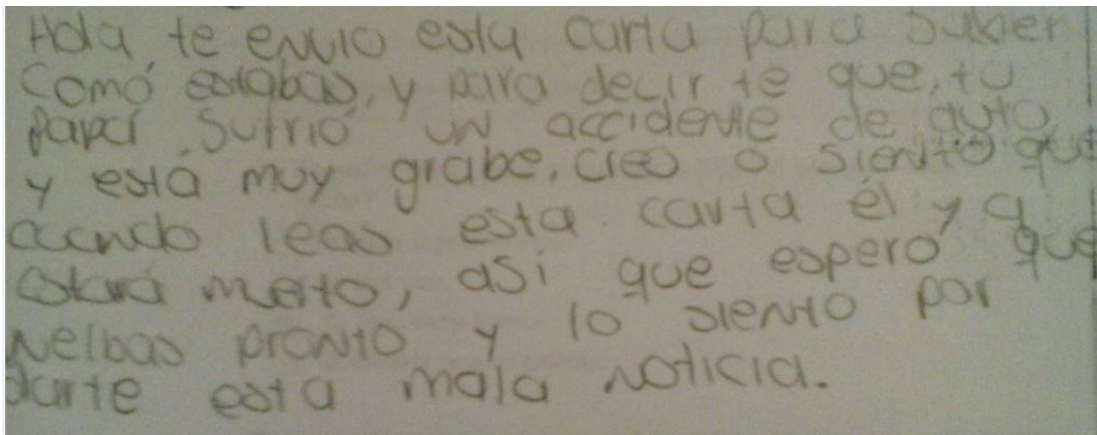 Hola te envio esta carta para saber
Comó estabas, y para decir te que, tu
papá sufrió un accidente de auto
y está muy grabe, creo o siento que
cuando leas esta carta él y a
estará merto, asi que espero que
welbas pronto y lo siento por
darte esta mala noticia.